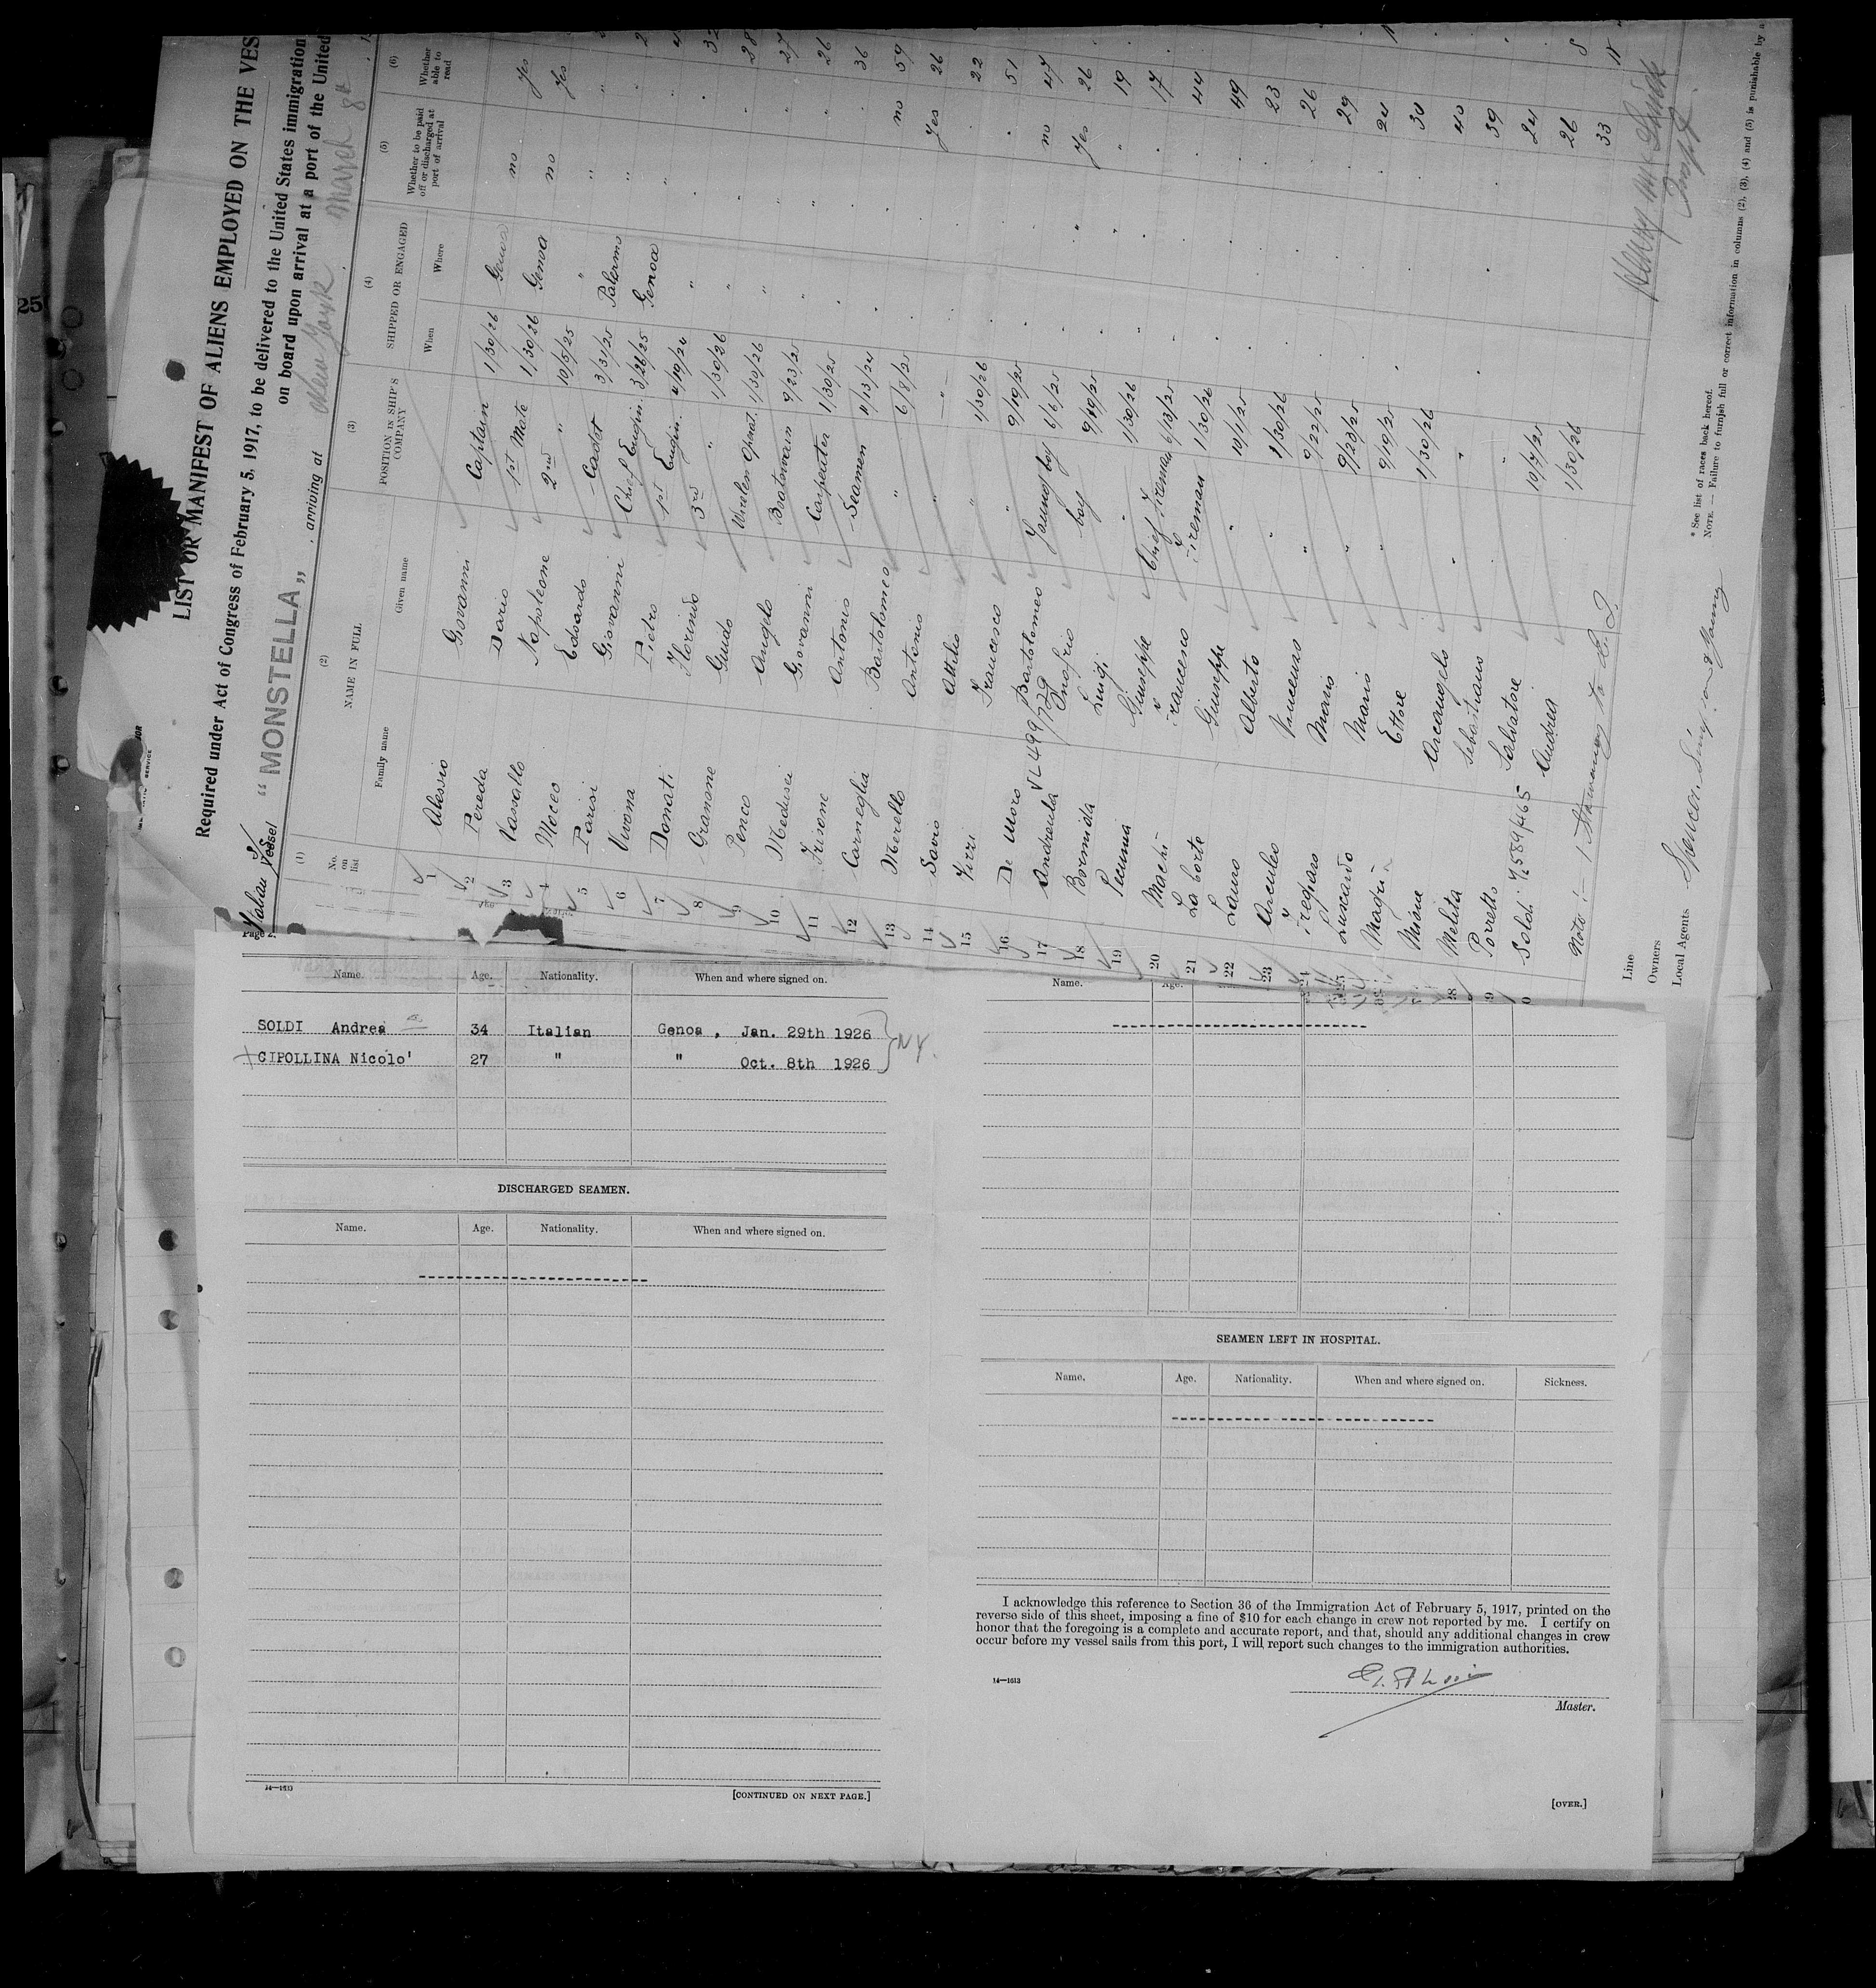 LIST OR MANIFEST OF ALIENS EMPLOYED ON THE VES
Required under Act of Congress of February 5, 1917, to be delivered to the United States immigration
on board upon arrival at a port of the United
Italian S/S
Vessel " MONSTELLA „ , arriving at New York March 8th
(1) (2) (3) (4) (5) (6)
No. on list
NAME IN FULL
Family name Given name
POSITION IN SHIP'S COMPANY
SHIPPED OR ENGAGED
When Where
Whether to be paid off or discharged at port of arrival
Whether able to read
1 Alessio Giovanni Captain 1/30/26 Genoa no Yes
2 Pereda Dario 1st Mate 1/30/26 Genoa no Yes
3 Vassallo Napoleone 2nd " 10/5/25 " " "
4 Moceo Edoardo Cadet 3/31/25 Palermo "
5 Parisi Giovanni Chief Engin. 3/26/25 Genoa "
6 Vivona Pietro 1st Engin. 4/19/24 "
7 Donati Florindo 3rd " 1/30/26 "
8 Granone Guido Wirelen Operat. 1/30/26 "
9 Penco Angelo Boatswain 9/23/25 "
10 Medusei Giovanni Carpenter 1/30/25
11 Frisone Antonio Seamen 4/13/24
12 Corneglia Bartolomeo " 6/8/25
13 Merello Antonio " — " —
14 Savio Attilio " 1/30/26
15 Firri Francesco " 9/19/25
16 De Moro Bartolomeo Young boy 6/6/25
17 Andreula VL 499/729 Onofrio boy 9/19/25
18 Bormida Luigi " 1/30/26
19 Pecunia Giuseppe Chief Fireman 6/13/25
20 Machi Francesco Fireman 1/30/26
21 La Corte Giuseppe " 10/1/25
22 Lauro Alberto " 1/30/26
23 Arculeo Vincenzo " 9/22/25
Fregharo Mario " 9/23/25
Luscardo Mario " 9/19/25
Magri Ettore 1/30/26
Misne Arcangelo "
28 Melita Sebastiano "
9 Porretto Salvatore 10/7/25
0 Soldi Andrea 1/30/26
no 59
Yes 26
22
51
no 47
Yes 26
19
17
44
49
23
26
29
24
30
40
39
24
26
33
Line
Owners
Local Agents Spencer, Sing and Young
* See list of races back hereof.
NOTE. — Failure to furnish full or correct information in columns (2), (3), (4) and (5) is punishable by a
Page 2.
Name. Age. Nationality. When and where signed on.
SOLDI Andrea 34 Italian Genoa , Jan. 29th 1926
CIPOLLINA Nicolo' 27 " " Oct. 8th 1926
NY.
DISCHARGED SEAMEN.
Name. Age. Nationality. When and where signed on.
14—1613
[CONTINUED ON NEXT PAGE.]
Name. Age.
SEAMEN LEFT IN HOSPITAL.
Name. Age. Nationality. When and where signed on. Sickness.
I acknowledge this reference to Section 36 of the Immigration Act of February 5, 1917, printed on the
reverse side of this sheet, imposing a fine of $10 for each change in crew not reported by me. I certify on
honor that the foregoing is a complete and accurate report, and that, should any additional changes in crew
occur before my vessel sails from this port, I will report such changes to the immigration authorities.
14—1613
Master.
[OVER.]
25